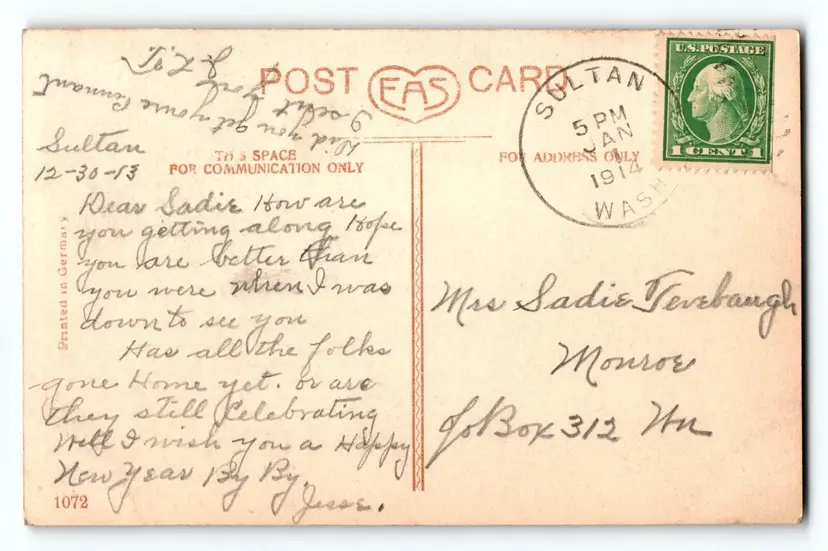 POST EAS CARD
THIS SPACE
FOR COMMUNICATION ONLY
FOR ADDRESS ONLY
SULTAN
5 PM
JAN
1
1914
WASH
U.S. POSTAGE
1 CENT 1
Did you get youre Pennant
I sent
for
Sultan
12-30-13
Dear Sadie How are
you getting along Hope
you are better than
you were when I was
down to see you
Has all the folks
gone Home yet. or are
they still Celebrating
Well I wish you a Happy
New Year By By.
Jesse.
Mrs Sadie Tevebaugh
Monroe
Box 312 Wn
Printed in Germany
1072